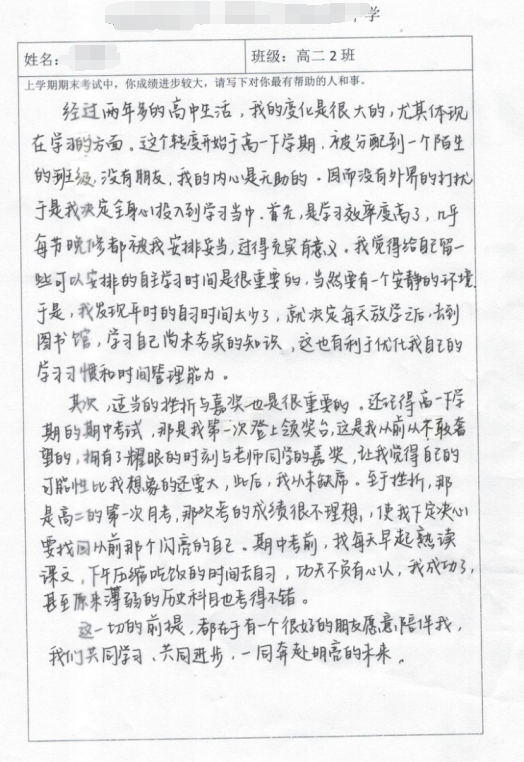 学
姓名：
班级：高二2班
上学期期末考试中，你成绩进步较大，请写下对你最有帮助的人和事。
经过两年多的高中生活，我的变化是很大的，尤其体现
在学习的方面。这个转变开始于高一下学期，被分配到一个陌生
的班级，没有朋友，我的内心是无助的。因而没有外界的打扰
于是我决定全身心投入到学习当中。首先，是学习效率度高了，几乎
每节晚修都被我安排妥当，过得充实有意义。我觉得给自己留一
些可以安排的自主学习时间是很重要的，当然要有一个安静的环境。
于是，我发现平时的自习时间太少了，就决定每天放学之后，去到
图书馆，学习自己尚未夯实的知识，这也有利于优化我自己的
学习习惯和时间管理能力。
其次，适当的挫折与嘉奖也是很重要的。还记得高一下学
期的期中考试，那是我第一次登上领奖台，这是我从前从不敢奢
望的，拥有了耀眼的时刻与老师同学的嘉奖，让我觉得自己的
可能性比我想象的还要大，此后，我从未缺席。至于挫折，那
是高二的第一次月考，那次考的成绩很不理想，使我下定决心
要找回从前那个闪亮的自己。期中考前，我每天早起熟读
课文，下午压缩吃饭的时间去自习，功夫不负有心人，我成功了，
甚至原来薄弱的历史科目也考得不错。
这一切的前提，都在于有一个很好的朋友愿意陪伴我，
我们共同学习、共同进步，一同奔赴明亮的未来。